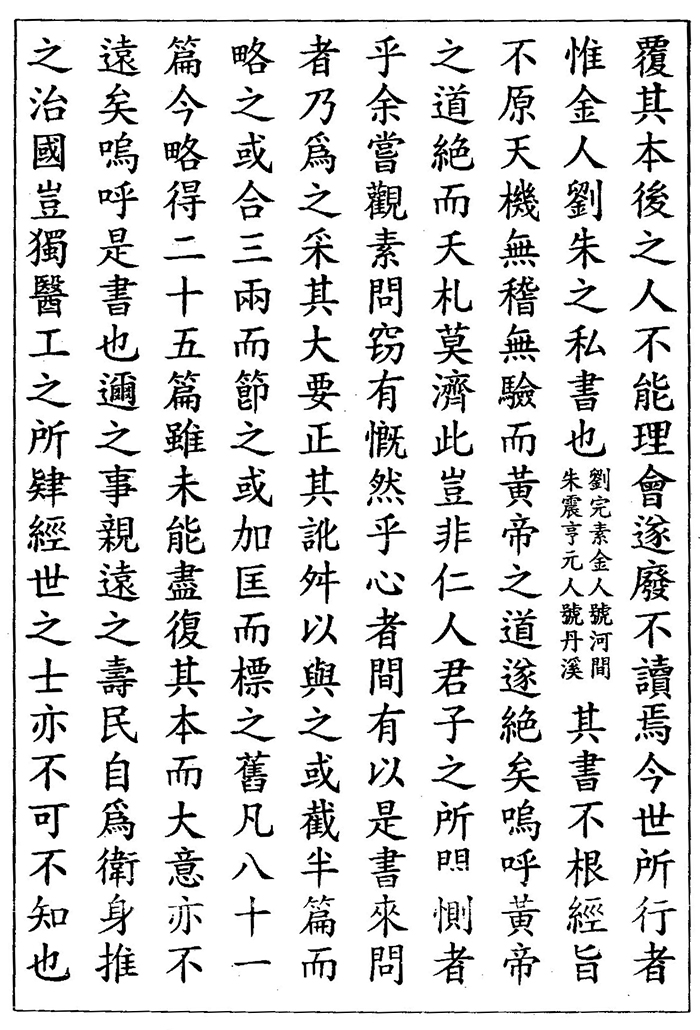 覆其本後之人不能理會遂廢不讀焉今世所行者
惟金人劉朱之私書也
劉完素金人號河間
朱震亨元人號丹溪
其書不根經旨
不原天機無稽無驗而黃帝之道遂絶矣嗚呼黃帝
之道絶而夭札莫濟此豈非仁人君子之所惻者
乎余嘗觀素問窃有慨然乎心者間有以是書來問
者乃爲之采其大要正其訛舛以與之或截半篇而
略之或合三兩而節之或加匡而標之舊凡八十一
篇今略得二十五篇雖未能盡復其本而大意亦不
遠矣嗚呼是書也邇之事親遠之壽民自爲衛身推
之治國豈獨醫工之所肄經世之士亦不可不知也